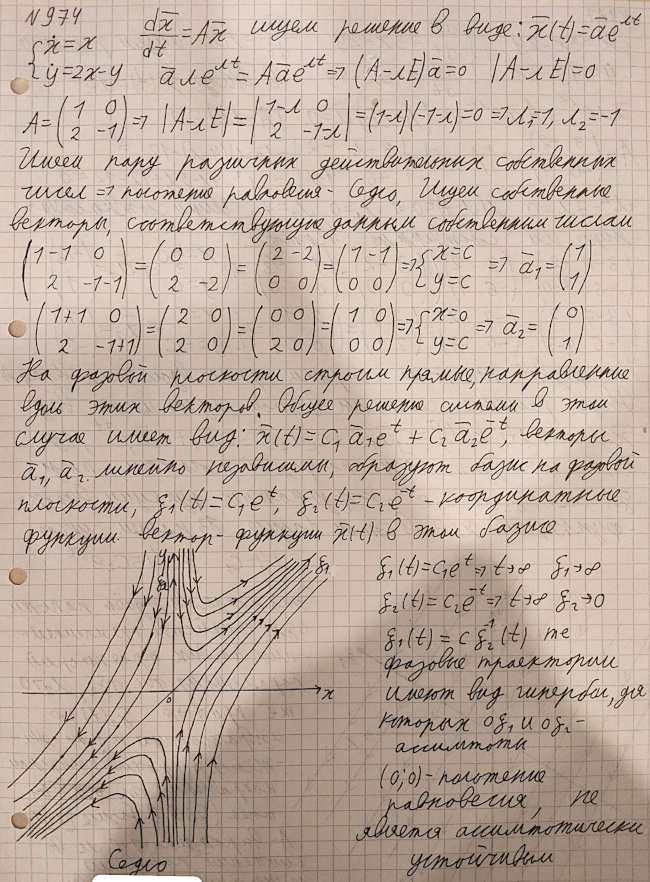 N974
{ẋ=x
{ẏ=2x-y
dx̄/dt=Ax̄ ищем решение в виде: x̄(t)=āe^λt
āλe^λt=Aāe^λt ⇒ (A-λE)ā=0 |A-λE|=0
A=(1 0; 2 -1) ⇒ |A-λE|=|1-λ 0; 2 -1-λ|=(1-λ)(-1-λ)=0 ⇒ λ₁=1, λ₂=-1
Имеем пару различных действительных собственных
чисел ⇒ положение равновесия - Седло, Ищем собственные
векторы, соответствующие данным собственным числам
(1-1 0; 2 -1-1)=(0 0; 2 -2)=(2 -2; 0 0)=(1 -1; 0 0) ⇒ {x=c; y=c ⇒ ā₁=(1; 1)
(1+1 0; 2 -1+1)=(2 0; 2 0)=(0 0; 2 0)=(1 0; 0 0) ⇒ {x=0; y=c ⇒ ā₂=(0; 1)
На фазовой плоскости строим прямые, направленные
вдоль этих векторов. Общее решение системы в этом
случае имеет вид: x̄(t)=C₁ā₁e^t+C₂ā₂e^-t, векторы
ā₁, ā₂ линейно независимы, образуют базис на фазовой
плоскости, ξ₁(t)=C₁e^t, ξ₂(t)=C₂e^-t - координатные
функции вектор-функции x̄(t) в этом базисе
y
ξ₂
ξ₁
x
0
Седло
ξ₁(t)=C₁e^t ⇒ t→∞ ξ₁→∞
ξ₂(t)=C₂e^-t ⇒ t→∞ ξ₂→0
ξ₁(t)=Cξ₂^-1(t) те
фазовые траектории
имеют вид гипербол, для
которых Oξ₁ и Oξ₂ -
ассимтоты
(0;0) - положение
равновесия, не
является ассимтотически
устойчивым